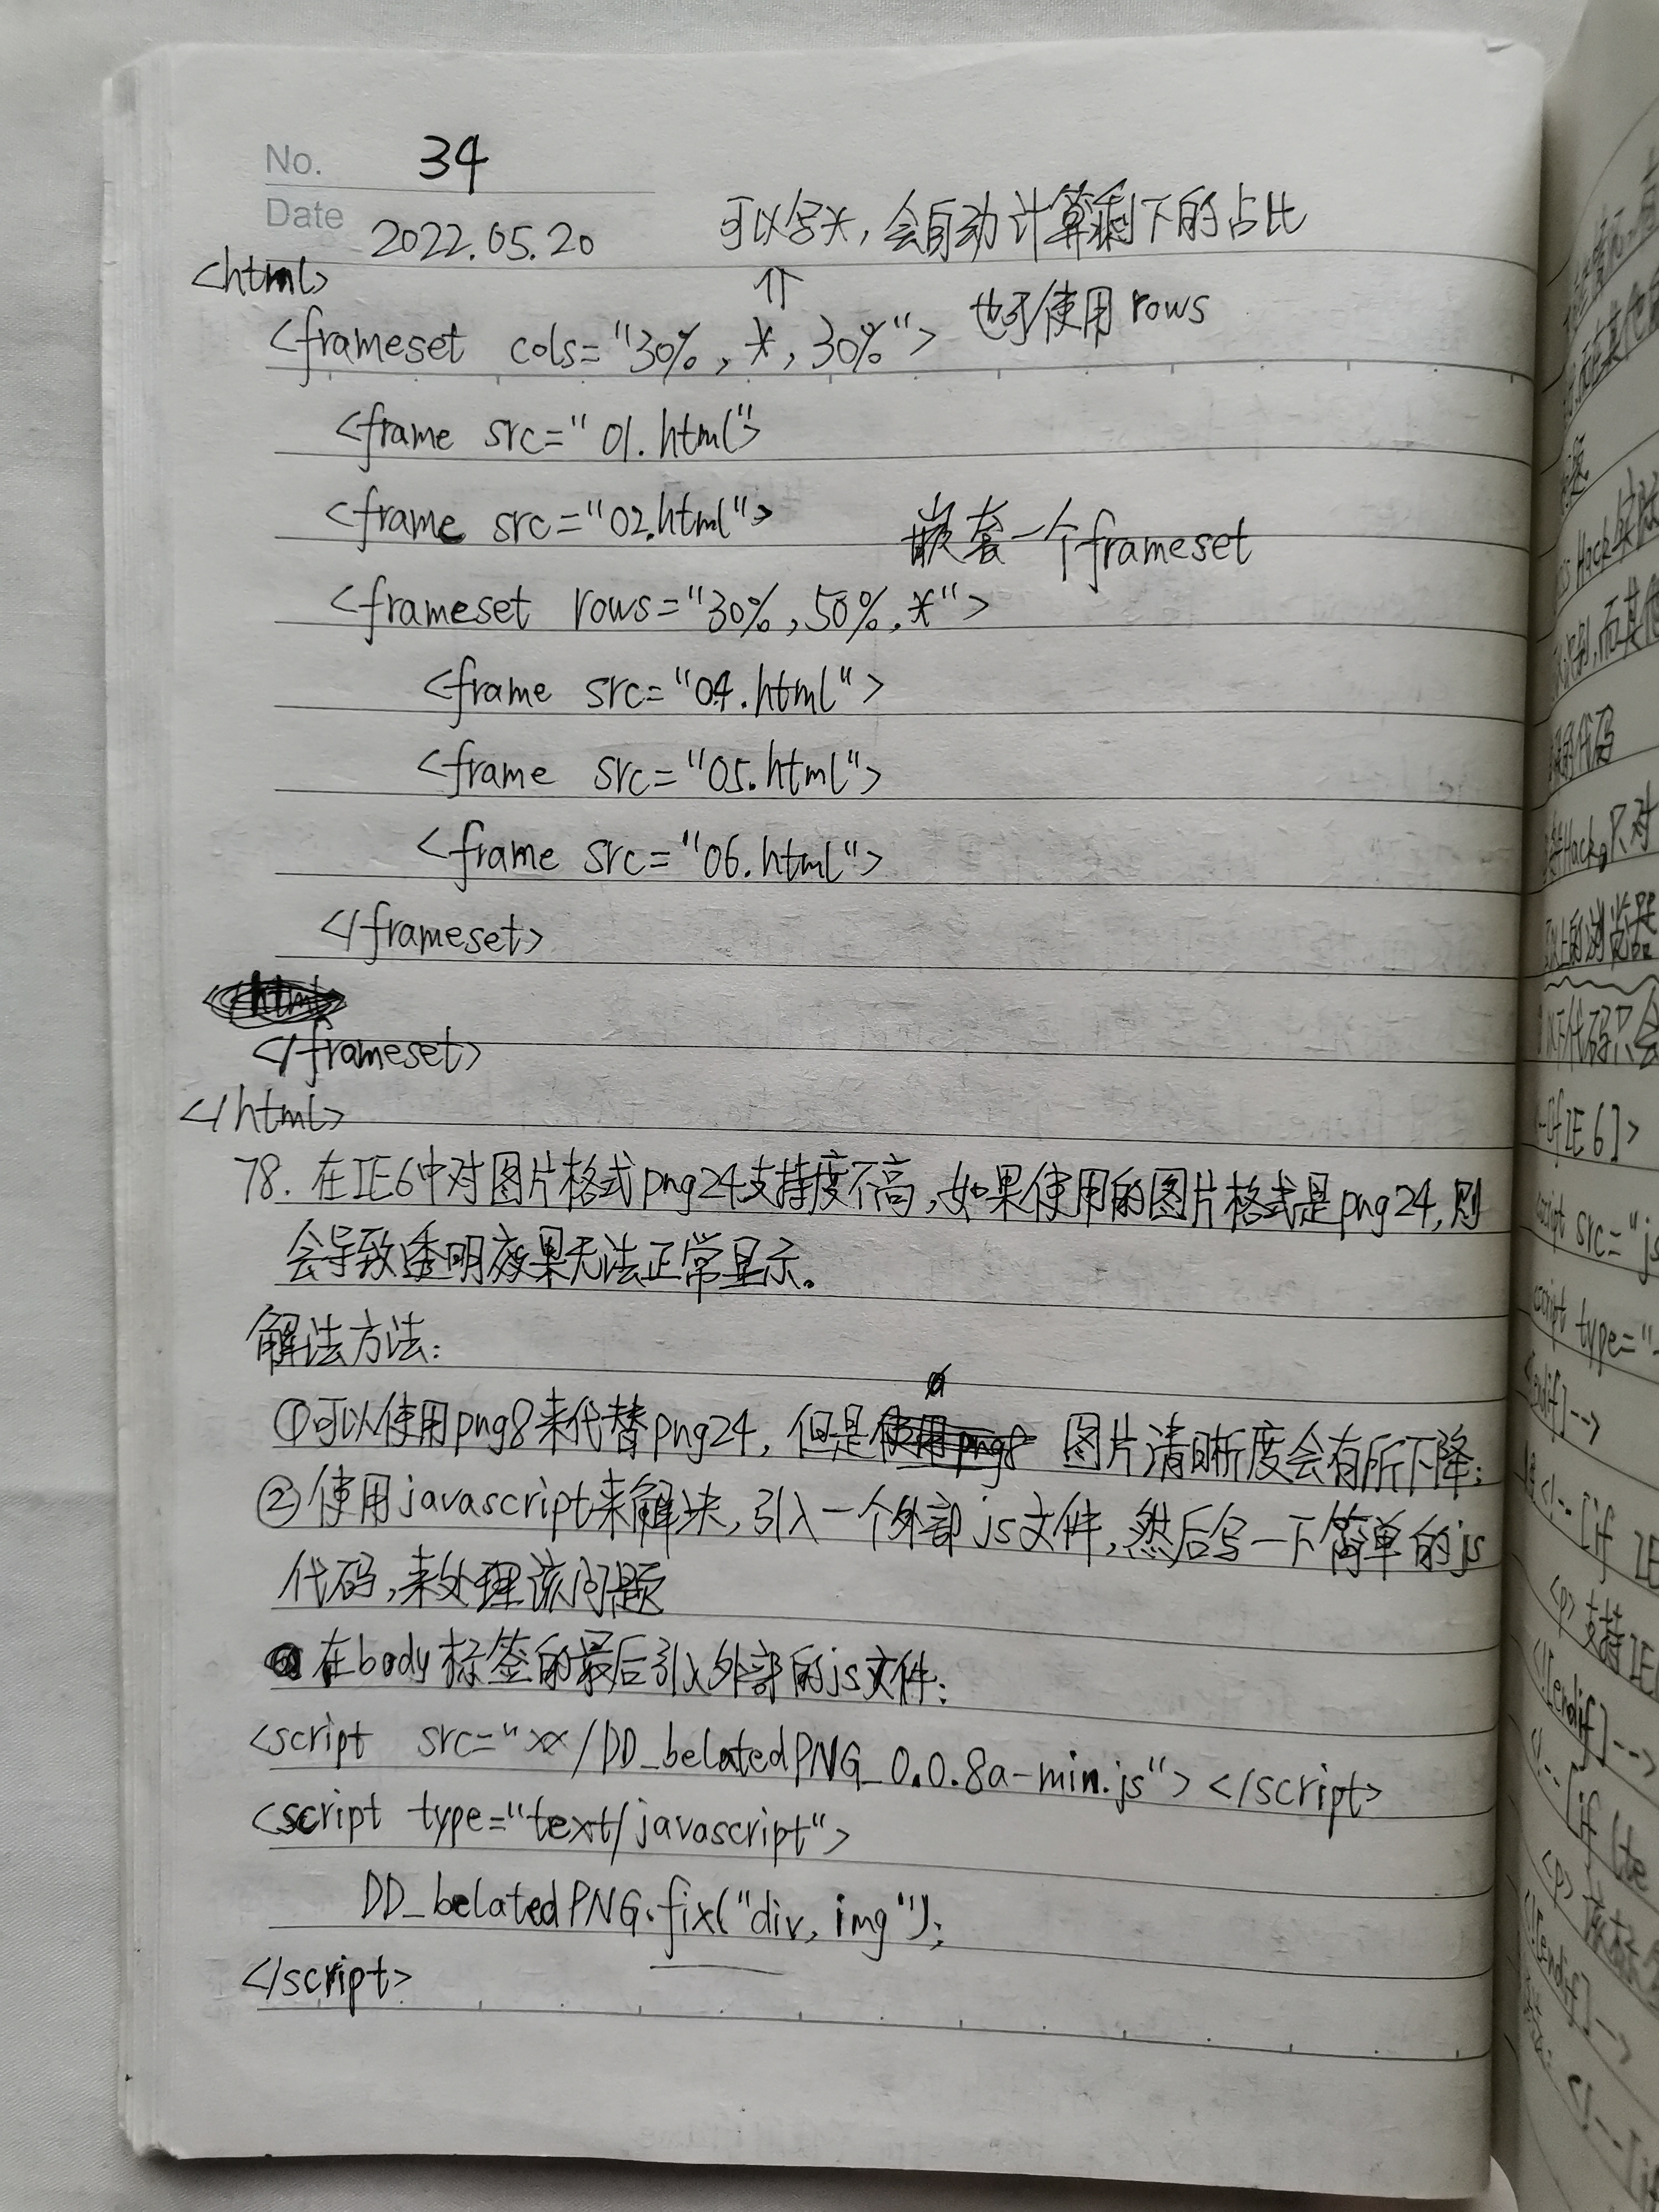 No. 34
Date 2022.05.20
可以写*,会自动计算剩下的占比
<html>
↑
<frameset cols="30%, *, 30%"> 也可使用rows
<frame src="01.html">
<frame src="02.html">
嵌套一个frameset
<frameset rows="30%, 50%, *">
<frame src="04.html">
<frame src="05.html">
<frame src="06.html">
</frameset>
</frameset>
</html>
78. 在IE6中对图片格式png24支持度不高,如果使用的图片格式是png24,则
会导致透明效果无法正常显示。
解法方法:
①可以使用png8来代替png24,但是使用png8 图片清晰度会有所下降;
②使用javascript来解决,引入一个外部js文件,然后写一下简单的js
代码,来处理该问题
在body标签的最后引入外部的js文件:
<script src="xx/DD_belatedPNG_0.0.8a-min.js"></script>
<script type="text/javascript">
DD_belatedPNG.fix("div, img");
</script>
而其他
的代码
Hack。只对
以上的浏览器
以下代码只会
-[if IE 6]>
script src="js
script type="
endif]-->
<!--[if IE
<p>支持IE
<![endif]-->
<!--[if (te
<p>
<![endif]-->
<!--[i